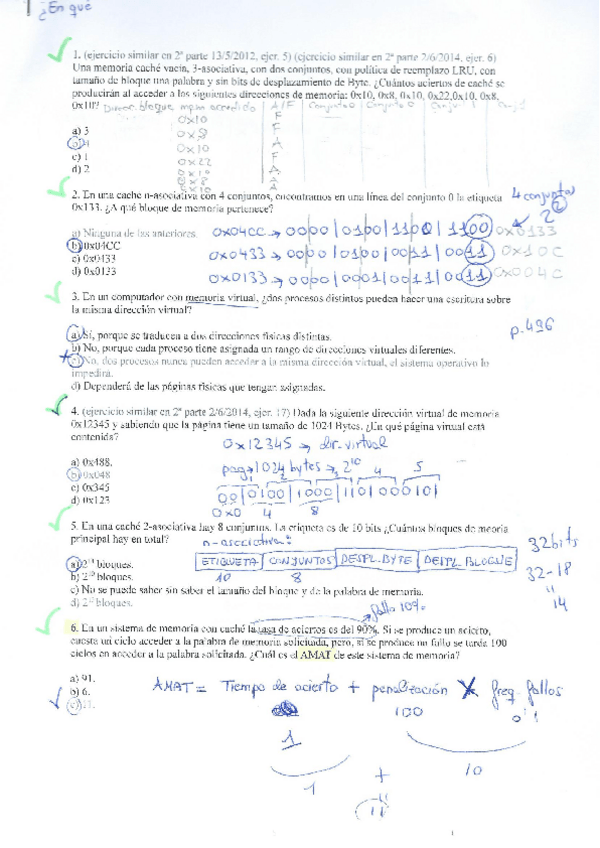 ¿En qué
1. (ejercicio similar en 2ª parte 13/5/2012, ejer. 5) (ejercicio similar en 2ª parte 2/6/2014, ejer. 6)
Una memoria caché vacía, 3-asociativa, con dos conjuntos, con política de reemplazo LRU, con
tamaño de bloque una palabra y sin bits de desplazamiento de Byte. ¿Cuántos aciertos de caché se
producirán al acceder a las siguientes direcciones de memoria: 0x10, 0x8, 0x10, 0x22,0x10, 0x8,
0x10? Direcc. bloque mem accedido A/F Conjunto 0 Conjunto 0
0x10 F
a) 3 0x8 F
0x10 A
c) 1 0x22 F
d) 2 0x10 A
0x8 A
0x10 A
2. En una cache n-asociativa con 4 conjuntos, encontramos en una línea del conjunto 0 la etiqueta 4 conjuntos
0x133. ¿A qué bloque de memoria pertenece? 2
a) Ninguna de las anteriores. 0x04CC → 0000|0100|1100|1100 0x0133
b) 0x04CC 0x0433 → 0000|0100|0011|0011 0x10C
c) 0x0433
d) 0x0133 0x0133 → 0000|0001|0011|0011 0x004C
3. En un computador con memoria virtual, ¿dos procesos distintos pueden hacer una escritura sobre
la misma dirección virtual?
p.496
a) Sí, porque se traducen a dos direcciones físicas distintas.
b) No, porque cada proceso tiene asignada un rango de direcciones virtuales diferentes.
c) No, dos procesos nunca pueden acceder a la misma dirección virtual, el sistema operativo lo
impedirá.
d) Dependerá de las páginas físicas que tengan asignadas.
4. (ejercicio similar en 2ª parte 2/6/2014, ejer. 17) Dada la siguiente dirección virtual de memoria
0x12345 y sabiendo que la página tiene un tamaño de 1024 Bytes. ¿En qué página virtual está
contenida?
0x12345 → dir. virtual
a) 0x488. pag → 1024 bytes → 2¹⁰ 4 5
b) 0x048
c) 0x345 00|0100|1000|1101000101
d) 0x123 0x0 4 8
5. En una caché 2-asociativa hay 8 conjuntos. La etiqueta es de 10 bits ¿Cuántos bloques de meoria
principal hay en total? n-asociativa: 32 bits
ETIQUETA CONJUNTOS DESPL. BYTE DESPL. BLOQUE
b) 2¹⁰ bloques. 10 8 32-18
c) No se puede saber sin saber el tamaño del bloque y de la palabra de memoria. "
bloques. 14
fallo 10%
6. En un sistema de memoria con caché la tasa de aciertos es del 90%. Si se produce un acierto,
cuesta un ciclo acceder a la palabra de memoria solicitada, pero, si se produce un fallo se tarda 100
ciclos en acceder a la palabra solicitada. ¿Cuál es el AMAT de este sistema de memoria?
a) 91. AMAT = Tiempo de acierto + penalización X freq. fallos
b) 6. 100 0'1
c) 11.
1
1 + 10
11